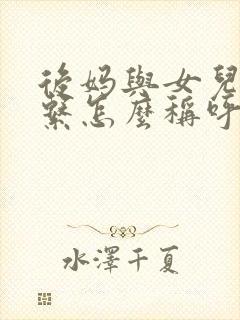 後媽與女兒
繫怎麼稱呼
水澤千夏